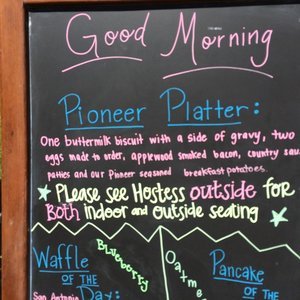 Good Morning
Pioneer Platter:
One buttermilk biscuit with a side of gravy, two
eggs made to order, applewood smoked bacon, country sau
patties and our Pioneer seasoned breakfast potatoes.
Please see Hostess outside for
Both indoor and outside seating
Waffle
OF THE
Day:
San Antonio
Blueberry
Oatme
Pancake
OF THE